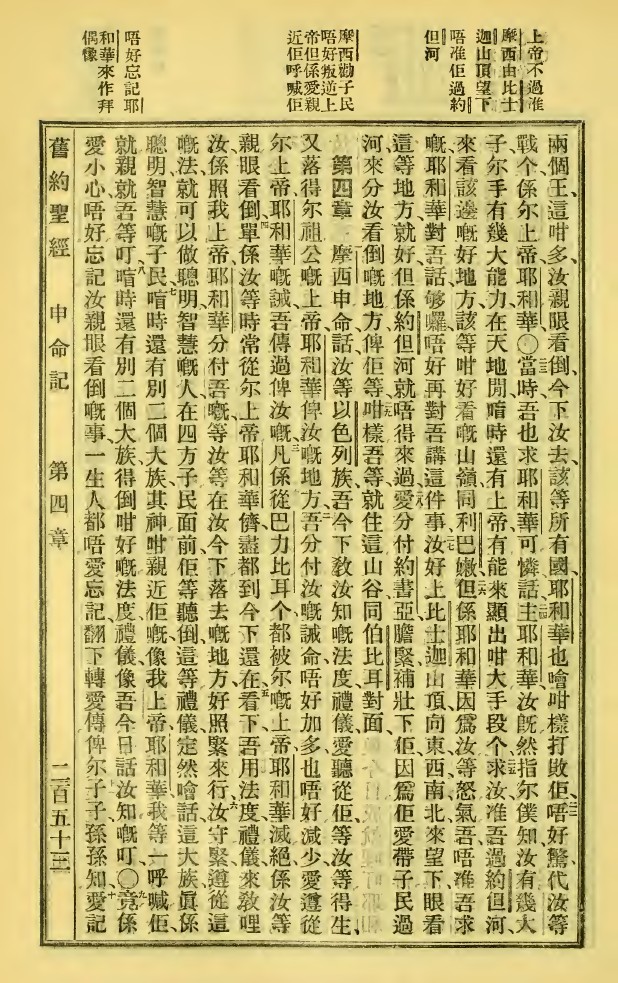 上帝不過准
摩西由比士
迦山頂望下
唔准佢過約
但河
摩西勸子民
唔好叛逆上
帝但係愛親
近佢呼喊佢
唔好忘記耶
和華來作拜
偶像
兩個王、這咁多、汝親眼看倒、今下汝去該等所有國、耶和華也噲咁樣打敗佢、二二唔好驚、代汝等
戰个係尔上帝耶和華、〇二三當時吾也求耶和華可憐話、二四主耶和華、汝旣然指尔僕知、汝有幾大
子、尔手有幾大能力、在天地間、㖠時還有上帝、有能來顯出咁大手段个、二五求汝准吾過約但河、
來看該邊嘅好地方、該等咁好看嘅山嶺、同利巴嫩、二六但係耶和華因爲汝等怒氣吾、唔准吾求
嘅、耶和華對吾話、够囉、唔好再對吾講這件事、二七汝好上比士迦山頂、向東西南北來望下、眼看
這等地方就好、但係約但河就唔得來過、二八愛分付約書亞、膽緊補壯下佢、因爲佢愛帶子民過
河、來分汝看倒嘅地方俾佢等、二九咁樣吾等就住這山谷、同伯比耳對面、
第四章 一摩西申命話、汝等以色列族、吾今下敎汝知嘅法度禮儀、愛聽從佢等、汝等得生、
又落得尔祖公嘅上帝耶和華俾汝嘅地方、二吾分付汝嘅誡命、唔好加多、也唔好減少、愛遵從
尔上帝耶和華嘅誡、吾傳過俾汝嘅、三凡係從巴力比耳个、都被尔嘅上帝耶和華滅絕、係汝等
親眼看倒、四單係汝等時常從尔上帝耶和華、儕盡都到今下還在、五看下吾用法度禮儀來敎哩
汝、係照我上帝耶和華分付吾嘅、等汝等在汝今下落去嘅地方、好照緊來行、六汝守緊遵從這
嘅法、就可以做聰明智慧嘅人、在四方子民面前、佢等聽倒這等禮儀、定然噲話、這大族眞係
聰明智慧嘅子民、七㖠時還有別二個大族、其神咁親近佢嘅、像我上帝耶和華、我等一呼喊佢、
就親就吾等叮、八㖠時還有別二個大族、得倒咁好嘅法度禮儀、像吾今日話汝知嘅叮、〇九竟係
愛小心、唔好忘記汝親眼看倒嘅事、一生人都唔愛忘記、翻下轉愛傳俾尔子子孫孫知、十愛記
舊約聖經 申命記 第四章 二百五十三